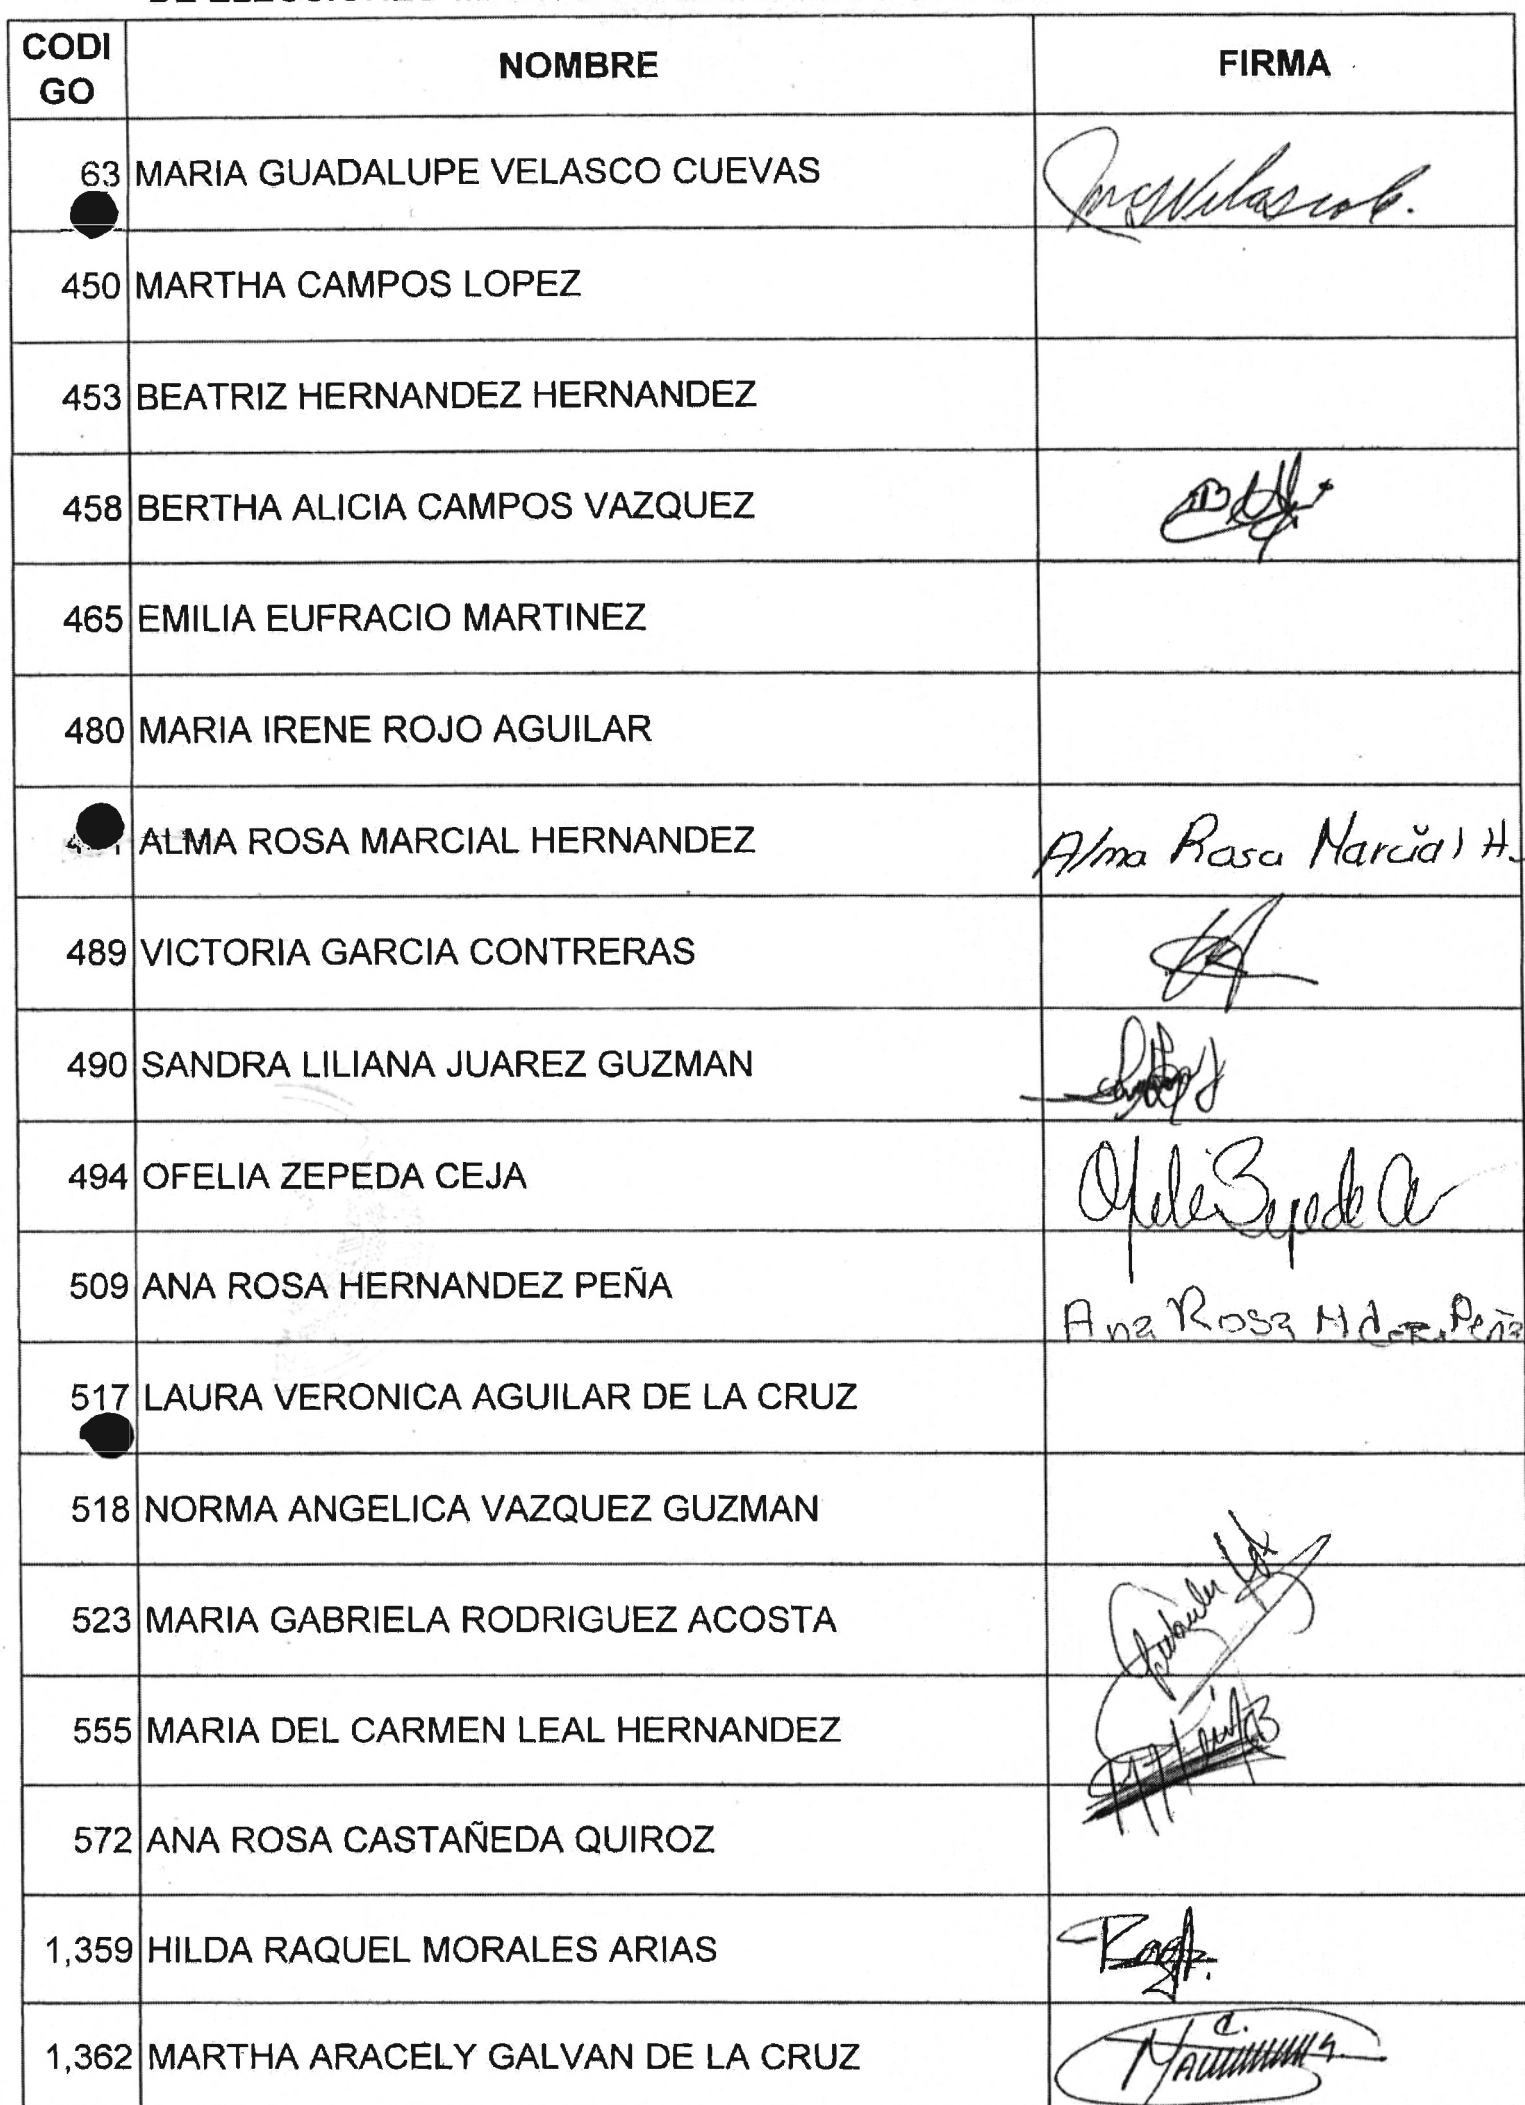 CODI
GO
NOMBRE
FIRMA
63 MARIA GUADALUPE VELASCO CUEVAS
450 MARTHA CAMPOS LOPEZ
453 BEATRIZ HERNANDEZ HERNANDEZ
458 BERTHA ALICIA CAMPOS VAZQUEZ
465 EMILIA EUFRACIO MARTINEZ
480 MARIA IRENE ROJO AGUILAR
ALMA ROSA MARCIAL HERNANDEZ Alma Rosa Marcial H.
489 VICTORIA GARCIA CONTRERAS
490 SANDRA LILIANA JUAREZ GUZMAN
494 OFELIA ZEPEDA CEJA
509 ANA ROSA HERNANDEZ PEÑA Ana Rosa Hdez. Peña
517 LAURA VERONICA AGUILAR DE LA CRUZ
518 NORMA ANGELICA VAZQUEZ GUZMAN
523 MARIA GABRIELA RODRIGUEZ ACOSTA
555 MARIA DEL CARMEN LEAL HERNANDEZ
572 ANA ROSA CASTAÑEDA QUIROZ
1,359 HILDA RAQUEL MORALES ARIAS
1,362 MARTHA ARACELY GALVAN DE LA CRUZ